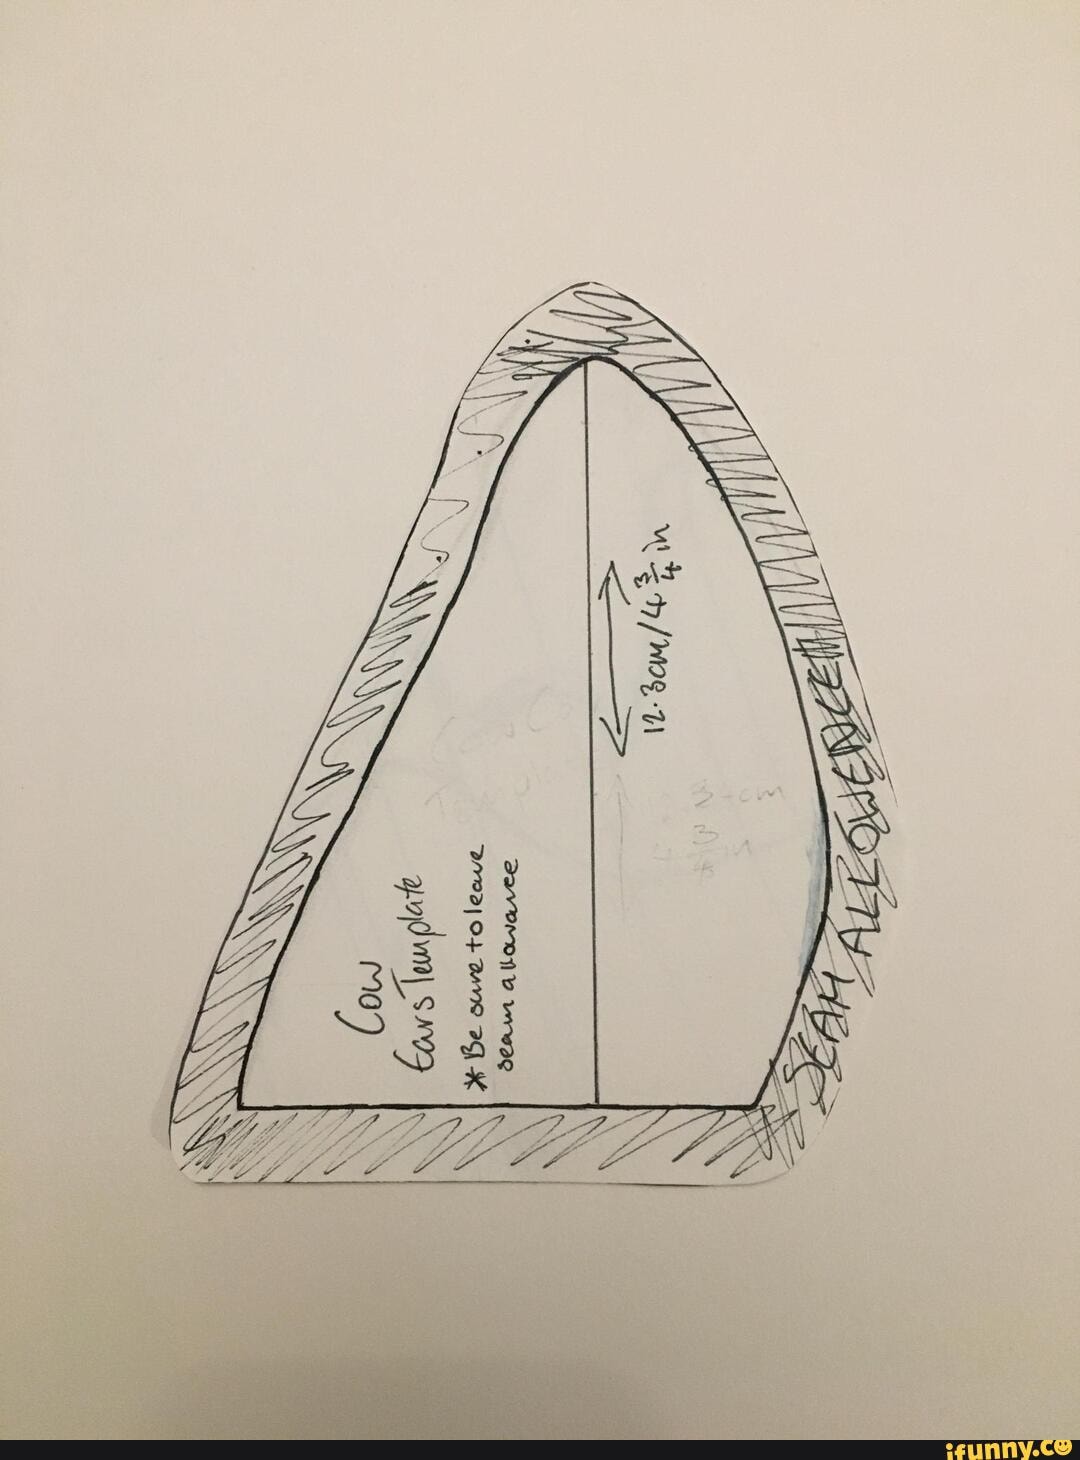 Cow
Ears Template
* Be sure to leave
seam allowance
12.3cm/4 3/4 in
SEAM ALLOWENCE
3 cm
3/4
ifunny.co